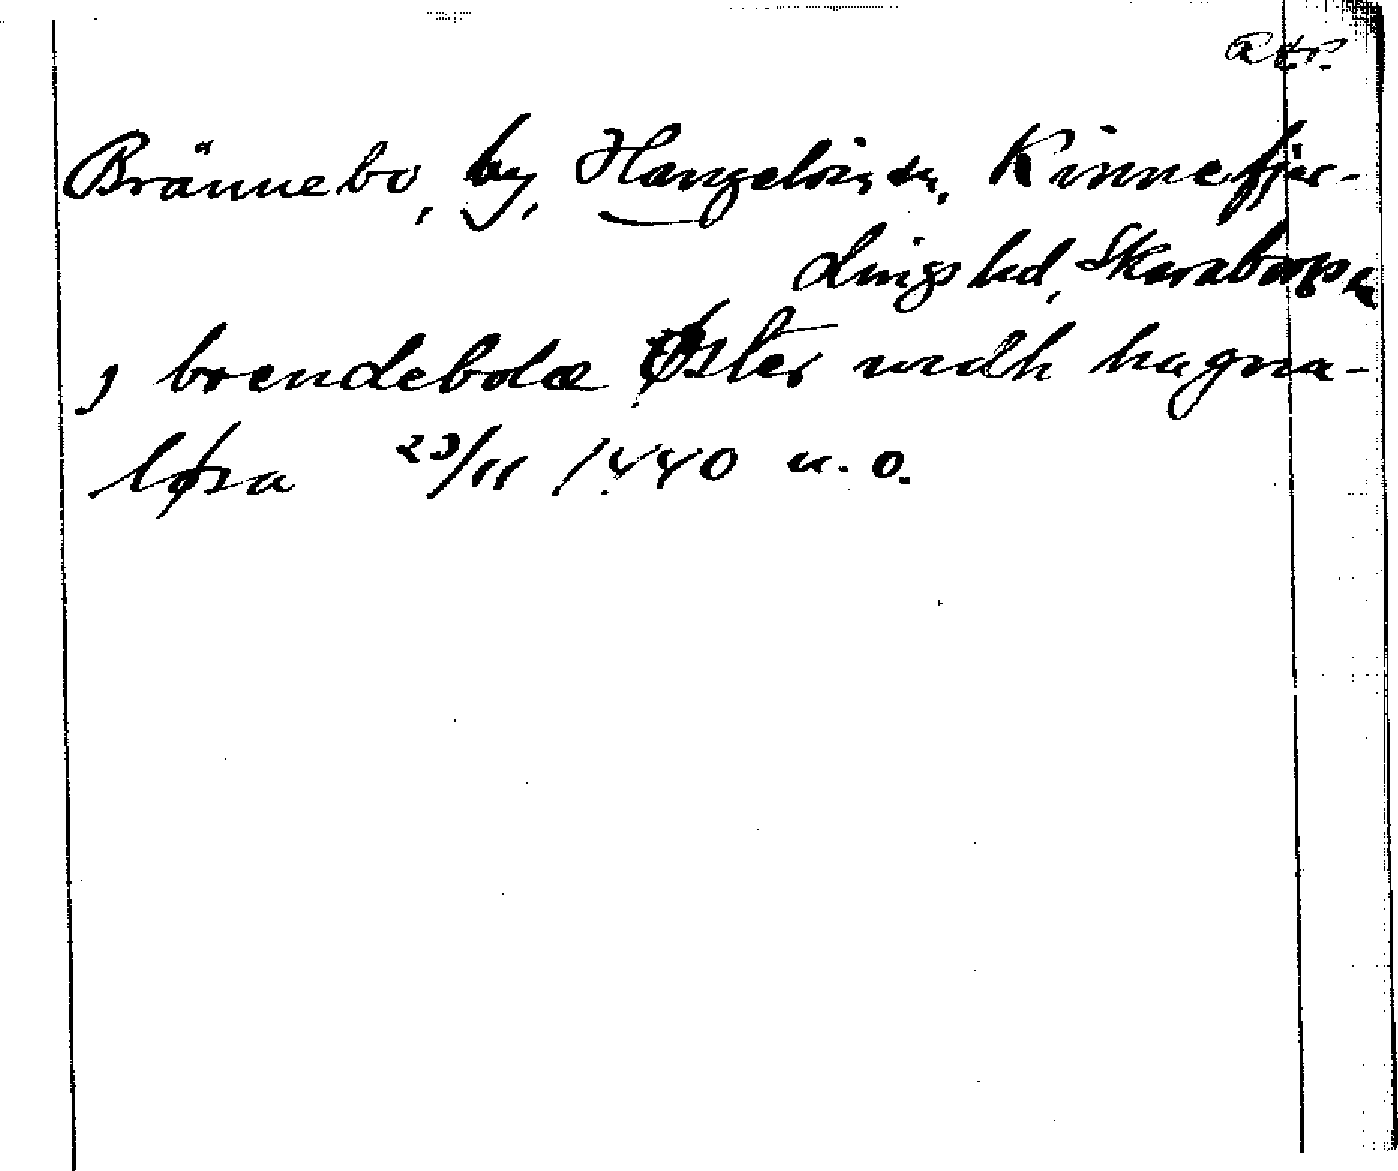 Brännebo, by, Hangelösa sn, Kinnefjär-
dings hd, Skaraborgs
j brendebolæ Øster widh hagna-
løsa 23/11 1440 u. o.